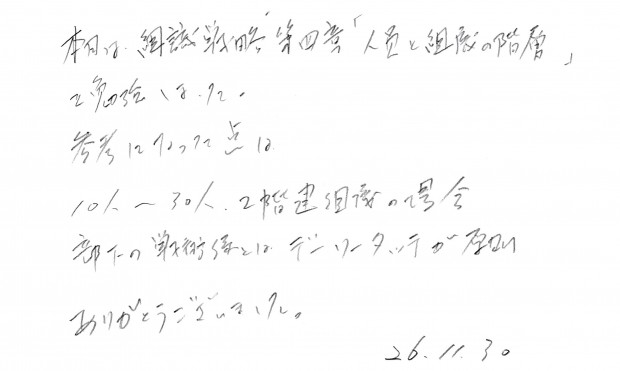 本日は、組織戦略 第四章「人員と組織の階層」
を勉強しました。
参考になった点は
10人〜30人、2階建組織の場合
部下の戦術係とは デシリータッチが原則
ありがとうございました。
26.11.30